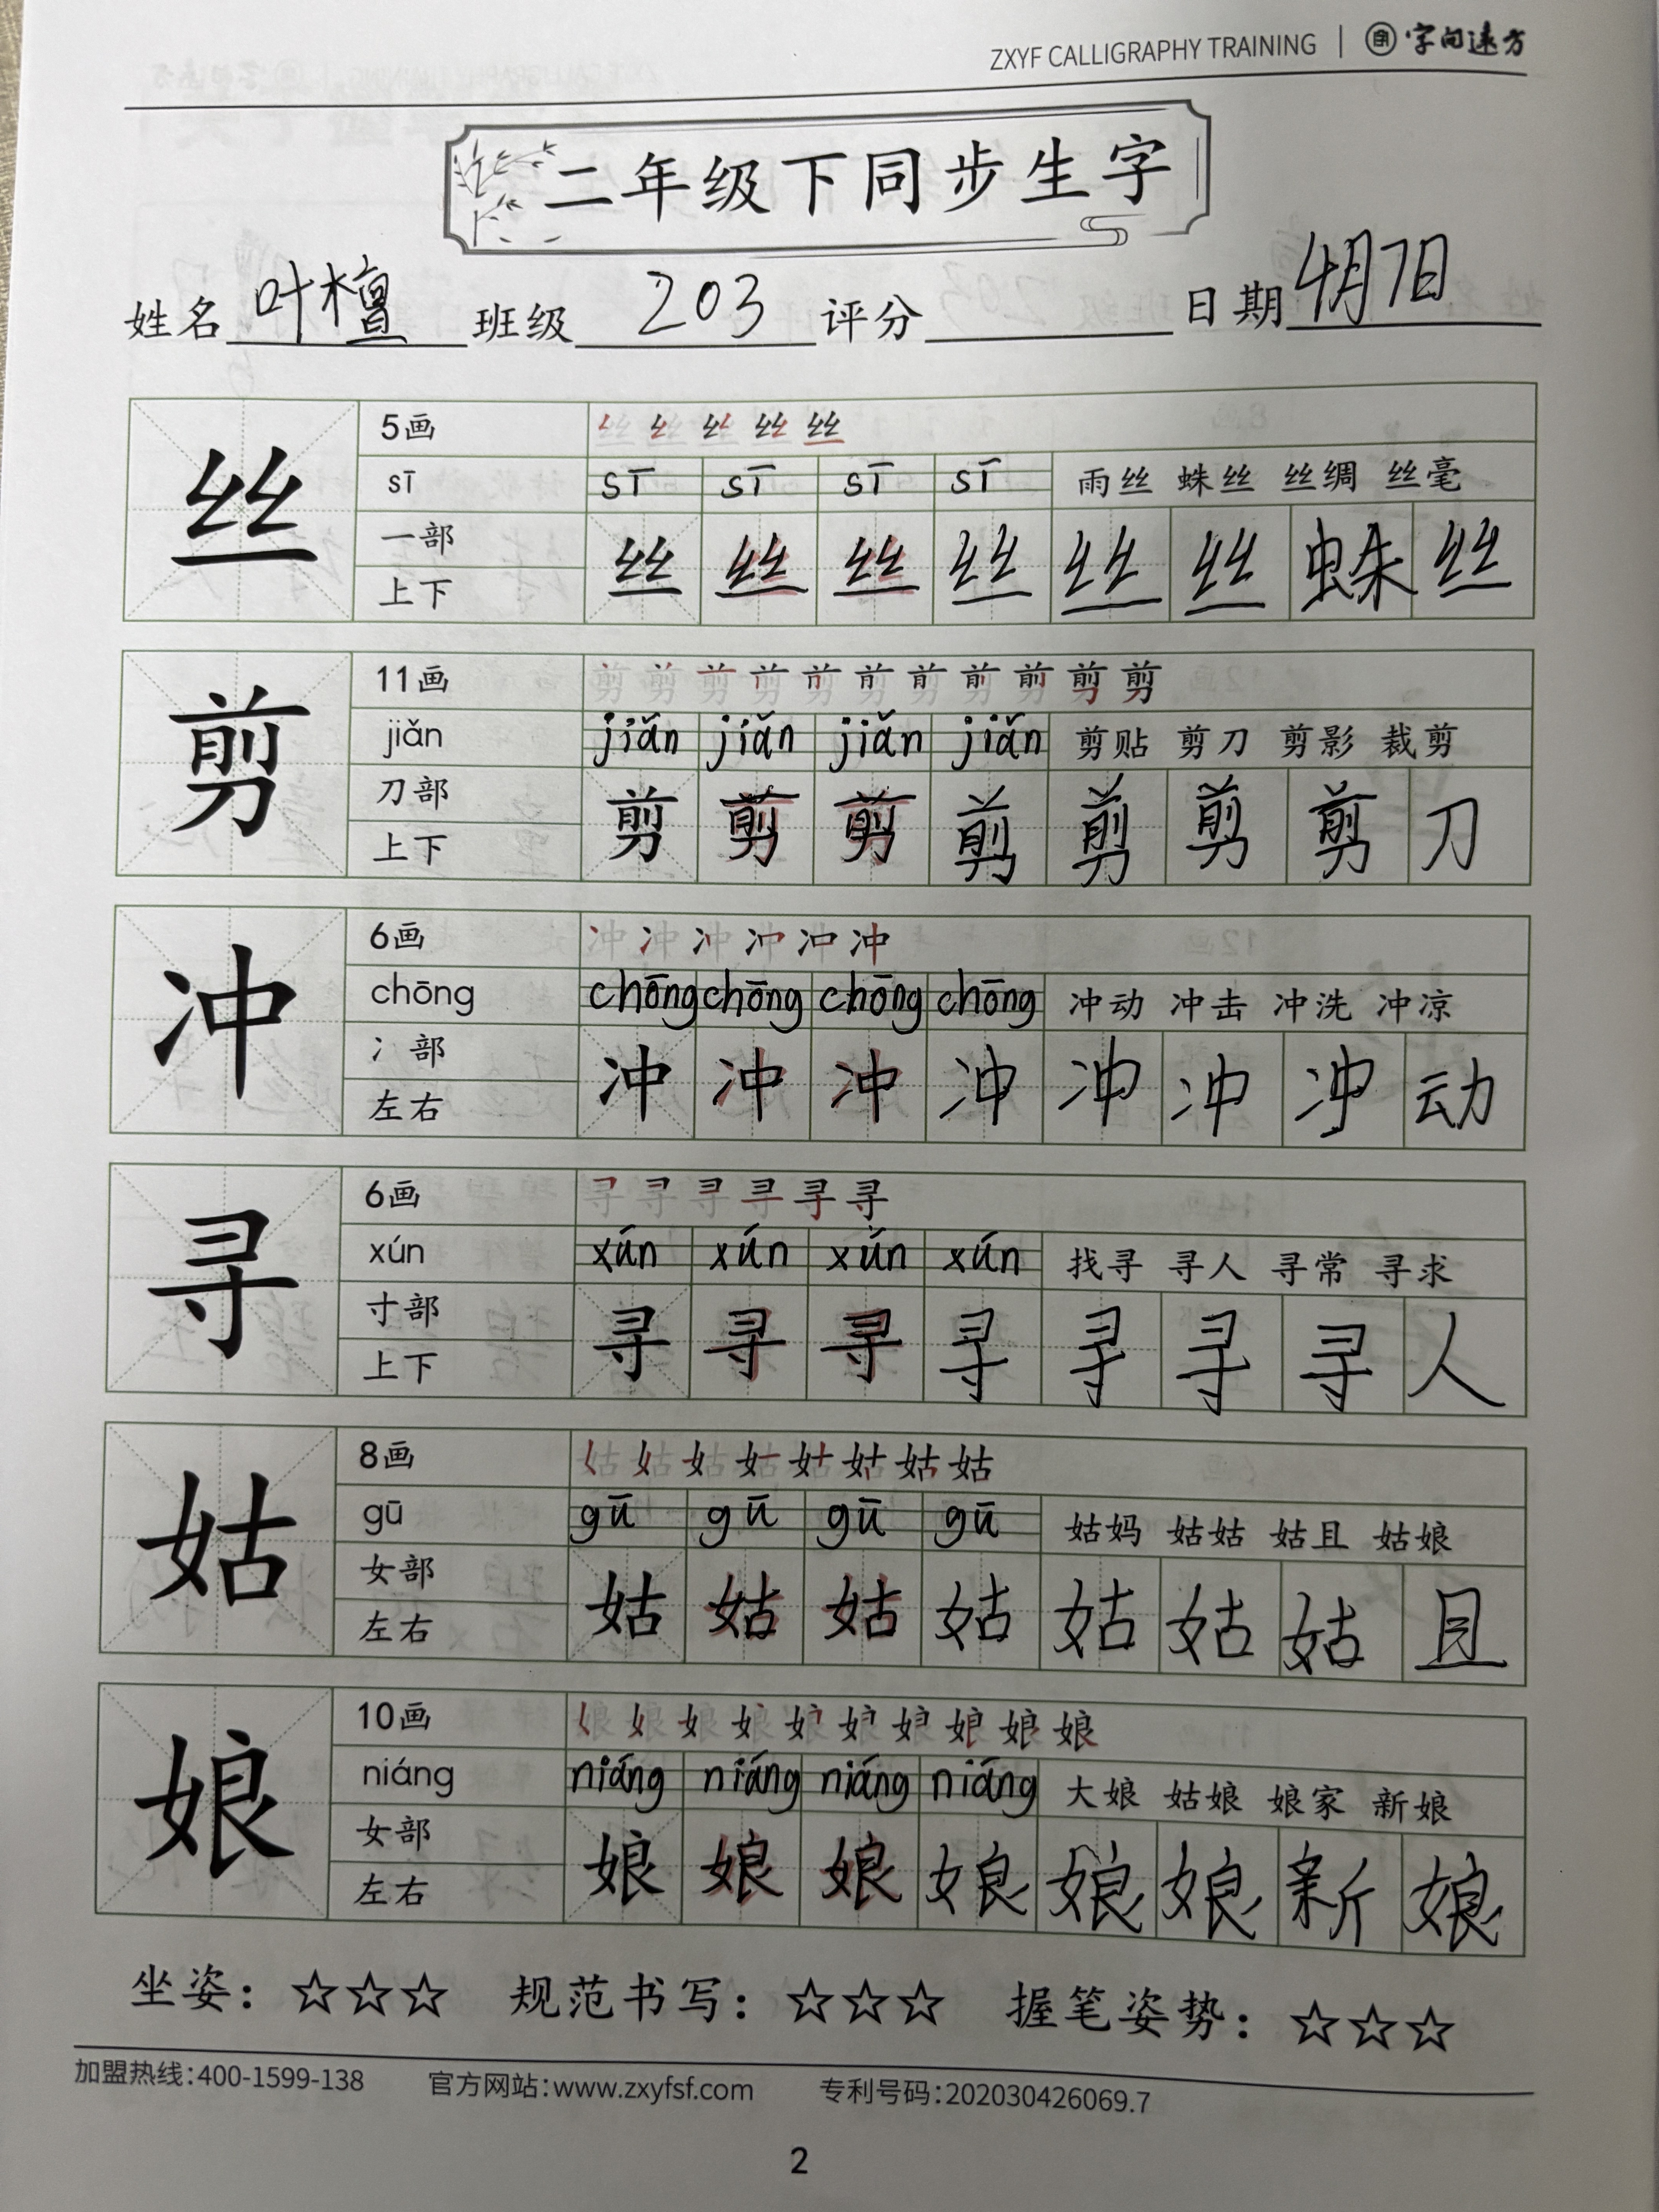 ZXYF CALLIGRAPHY TRAINING | 字向远方
二年级下同步生字
姓名 叶檀 班级 203 评分 日期 4月7日
5画 丝 丝 丝 丝 丝
丝 sī sī sī sī sī 雨丝 蛛丝 丝绸 丝毫
一部 丝 丝 丝 丝 丝 丝 蛛 丝
上下
11画 剪 剪 剪 剪 剪 剪 剪 剪 剪 剪 剪
剪 jiǎn jiǎn jiǎn jiǎn jiǎn 剪贴 剪刀 剪影 裁剪
刀部 剪 剪 剪 剪 剪 剪 剪 刀
上下
6画 冲 冲 冲 冲 冲 冲
冲 chōng chōng chōng chōng chōng 冲动 冲击 冲洗 冲凉
冫部 冲 冲 冲 冲 冲 冲 冲 动
左右
6画 寻 寻 寻 寻 寻 寻
寻 xún xún xún xún xún 找寻 寻人 寻常 寻求
寸部 寻 寻 寻 寻 寻 寻 寻 人
上下
8画 姑 姑 姑 姑 姑 姑 姑 姑
姑 gū gū gū gū gū 姑妈 姑姑 姑且 姑娘
女部 姑 姑 姑 姑 姑 姑 姑 且
左右
10画 娘 娘 娘 娘 娘 娘 娘 娘 娘 娘
娘 niáng niáng niáng niáng niáng 大娘 姑娘 娘家 新娘
女部 娘 娘 娘 娘 娘 娘 新 娘
左右
坐姿：☆☆☆ 规范书写：☆☆☆ 握笔姿势：☆☆☆
加盟热线：400-1599-138 官方网站：www.zxyfsf.com 专利号码：202030426069.7
2